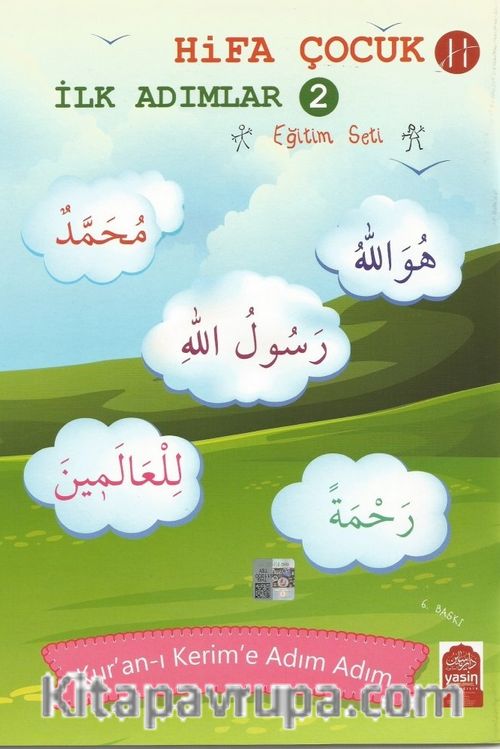 HiFA ÇOCUK H
İLK ADIMLAR 2
Eğitim Seti
مُحَمَّدٌ
هُوَ اللّٰهُ
رَسُولُ اللّٰهِ
لِلْعَالَمٖينَ
رَحْمَةً
6. BASKI
Kur'an-ı Kerim'e Adım Adım
yasin
Kitapavrupa.com